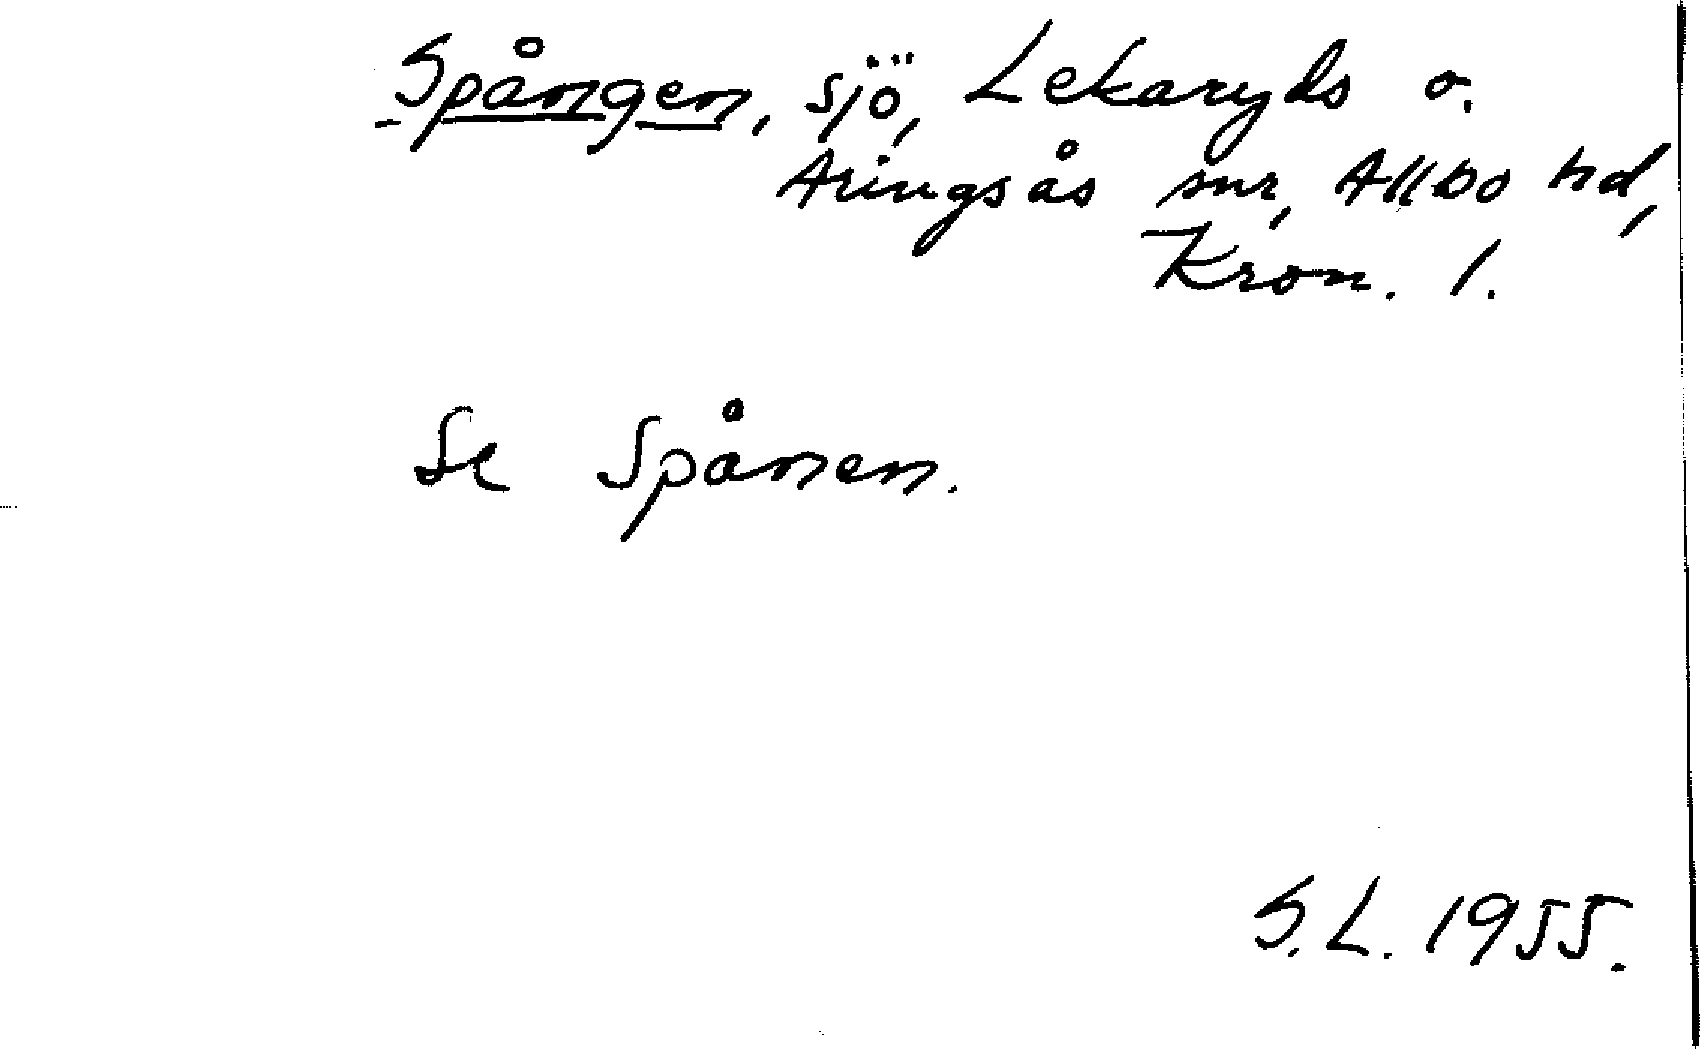 Spången, sjö, Lekaryds o.
Aringsås snr, Allbo hd,
Kron. l.
Se Spånen.
S.L. 1955.